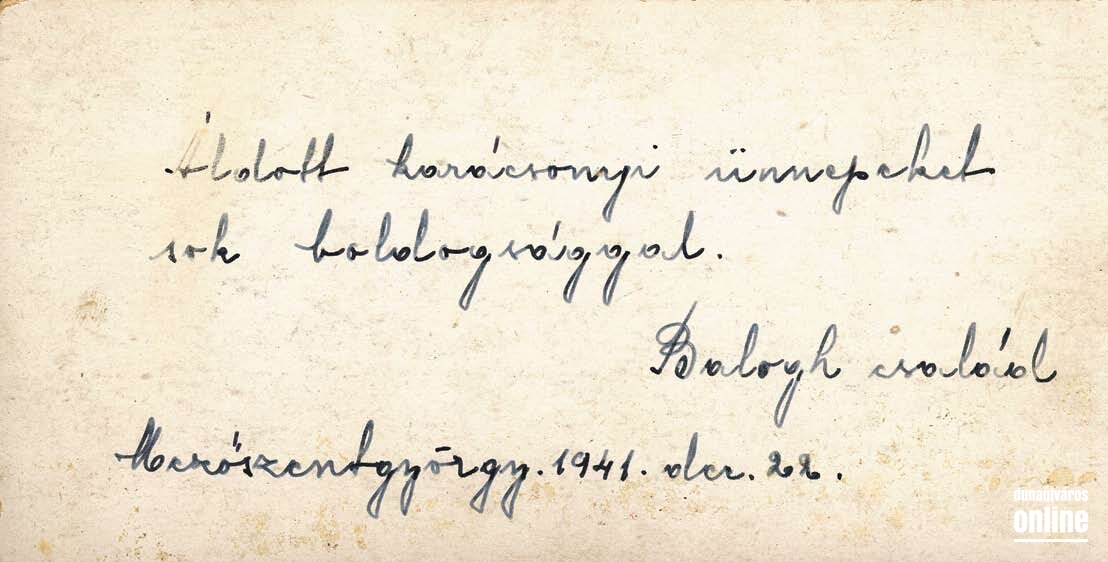 Áldott karácsonyi ünnepeket
sok boldogsággal.
Balogh család
Mezőszentgyörgy. 1941. dec. 22.
dunaújváros
online